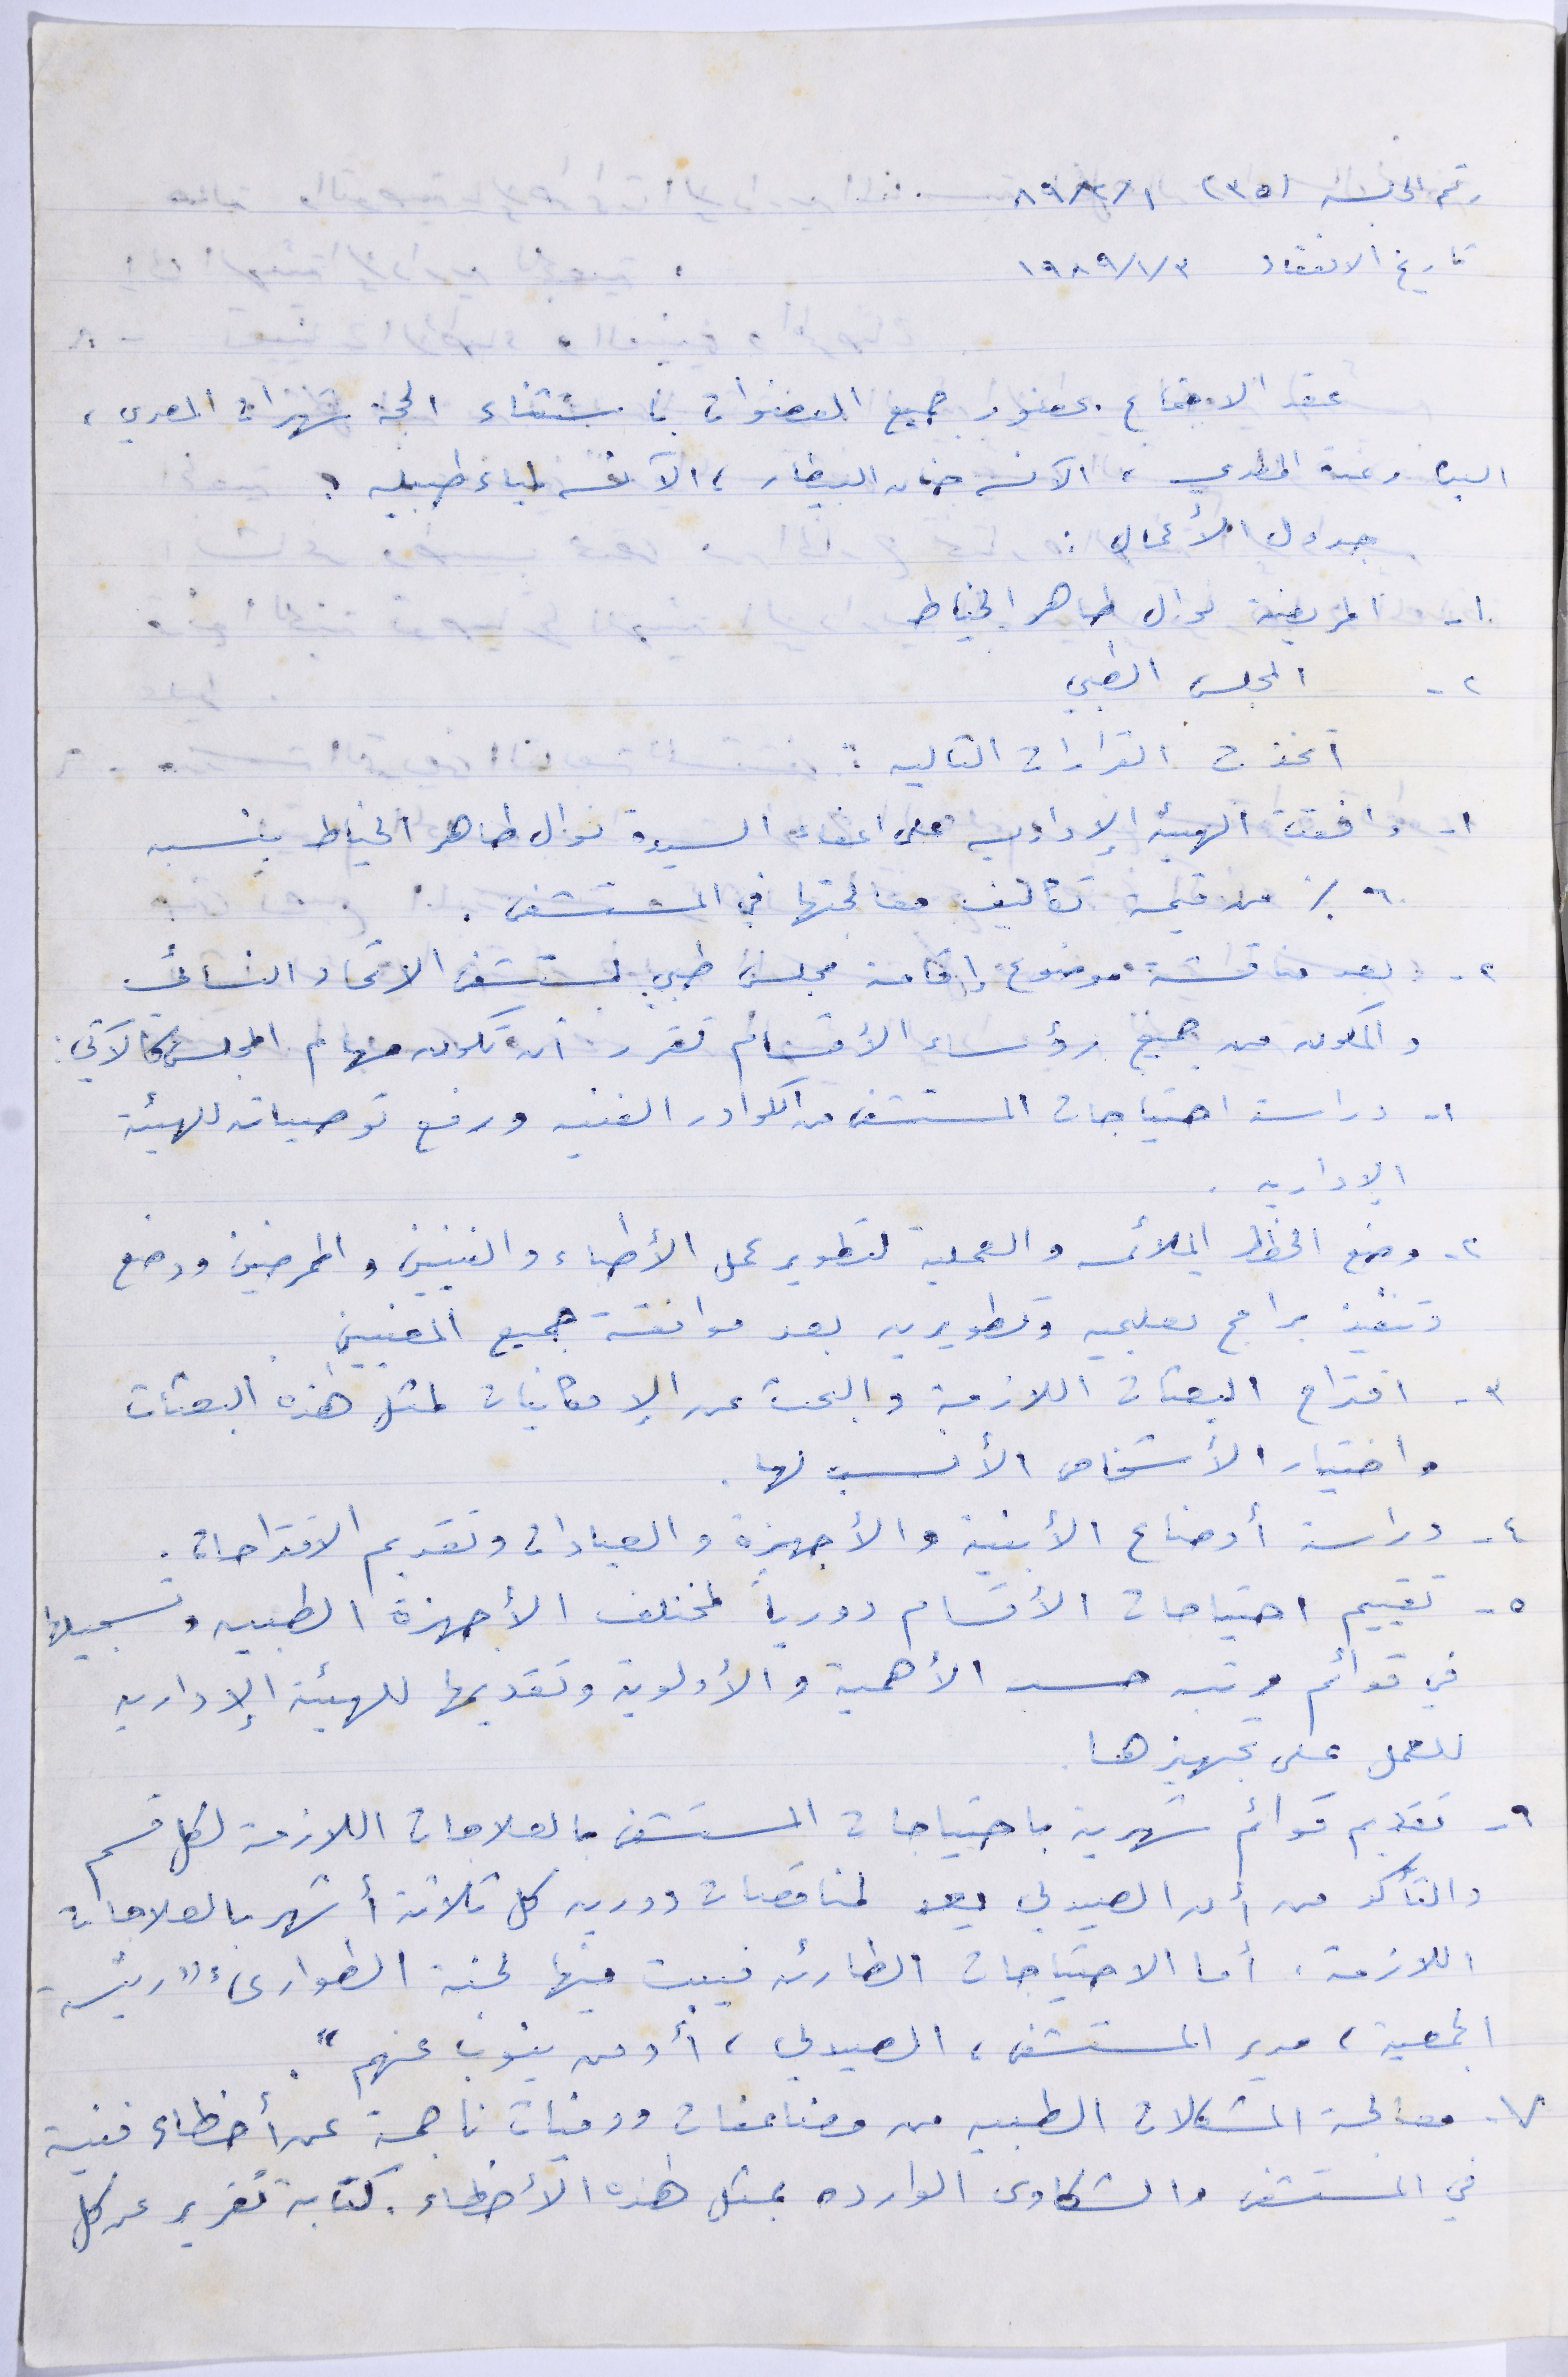 رقم الجلسة (٣٥) ٨٩/٢/١
تاريخ الانعقاد ١٩٨٩/١/٣
عقد الاجتماع بحضور جميع العضوات باستثناء الحجة شهرات المصري ،
السيدة رغدة المطري ، الآنسة حنان البيطار ، الآنسة لمياء طبيله .
جدول الأعمال :
١- المريضة نوال طاهر الخياط
٢- المجلس الطبي
اتخذت القرارات التاليه :
١- وافقت الهيئة الإداريه على اعفاء السيدة نوال طاهر الخياط بنسبه
٦٠٪ من قيمة تكاليف معالجتها في المستشفى .
٢- بعد مناقشة موضوع إقامة مجلس طبي لمستشفى الاتحاد النسائي
والمكون من جميع رؤساء الأقسام تقرر أن تكون مهام المجلس كالآتي :
١- دراسة احتياجات المستشفى من الكوادر الفنيه ورفع توصياته للهيئة
الإداريه .
٢- وضع الخطط الملائمه والعملية لتطوير عمل الأطباء والفنيين والممرضين ووضع
وتنفيذ برامج تعليميه وتطويريه بعد موافقة جميع المعنيين .
٣- اقتراح البعثات اللازمة والبحث عن الإمكانيات لمثل هذه البعثات
واختيار الأشخاص الأنسب لها .
٤- دراسة أوضاع الأبنية والأجهزة والعيادات وتقديم الاقتراحات .
٥- تقييم احتياجات الأقسام دورياً لمختلف الأجهزة الطبيه وتسجيلها
في قوائم مرتبه حسب الأهمية والأولوية وتقديمها للهيئة الإداريه
للعمل على تجهيزها .
٦- تقديم قوائم شهرية باحتياجات المستشفى بالعلاجات اللازمة لكل قسم
والتأكد من أن الصيدلي يعد لمناقصات دوريه كل ثلاثة أشهر بالعلاجات
اللازمة . أما الاحتياجات الطارئه فيبت فيها لجنة الطوارىء " رئيسة
الجمعية ، مدير المستشفى ، الصيدلي ، أو من ينوب عنهم " .
٧- معالجة المشكلات الطبيه من مضاعفات ووفيات ناجمة عن أخطاء فنية
في المستشفى والشكاوى الوارده بمثل هذه الأخطاء . كتابة تقرير عن كل